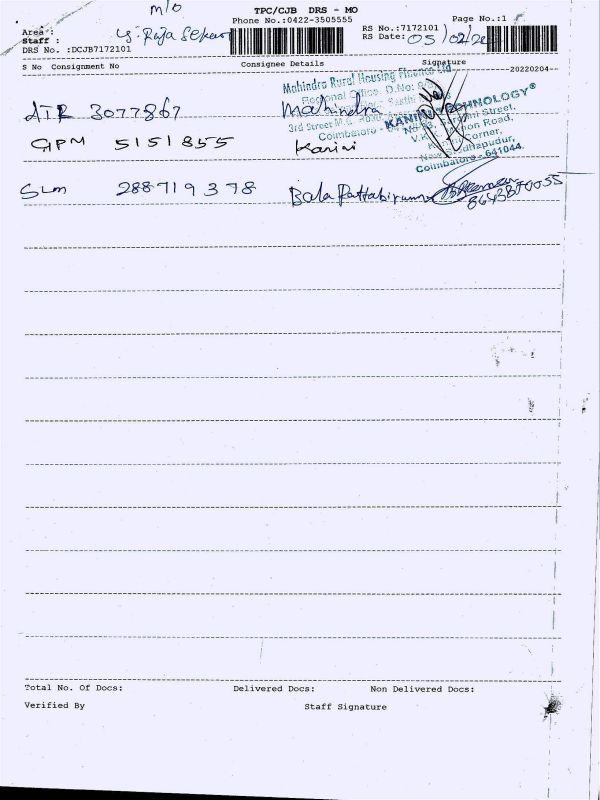 M/O
TPC/CJB DRS - MO
Phone No.:0422-3505555
Page No.:1
Area :
Staff :
DRS No. :DCJB7172101
RS No.:7172101
RS Date: 05/02/22
S No Consignment No
Consignee Details
Signature
20220204
ATR 3077867
Mahindra
Mahindra Rural Housing Finance Ltd
Regional Office. D.No:
3rd Street
Coimbatore
KANINI TECHNOLOGY®
Street,
Road,
Corner,
Coimbatore - 641044.
GPM 5151855
Kanini
SLM 288719378
Bala Pattabiraman
Total No. Of Docs:
Delivered Docs:
Non Delivered Docs:
Verified By
Staff Signature